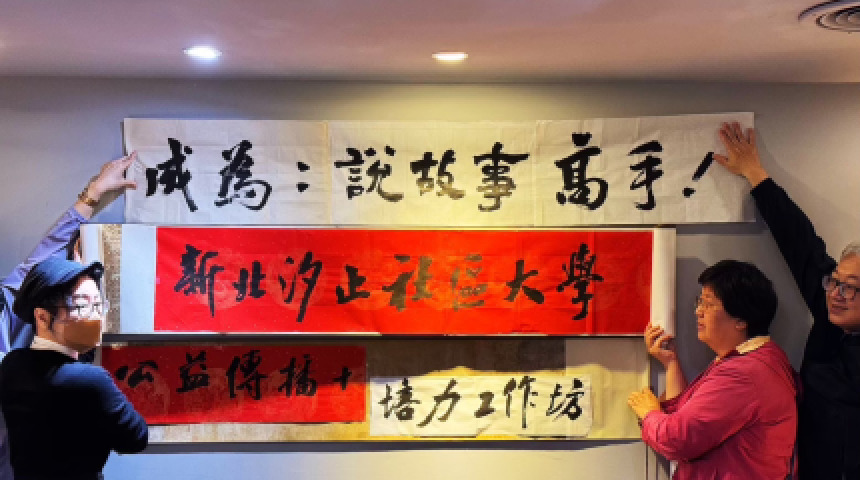 成為：說故事高手！
新北汐止社區大學
公益傳播十
培力工作坊